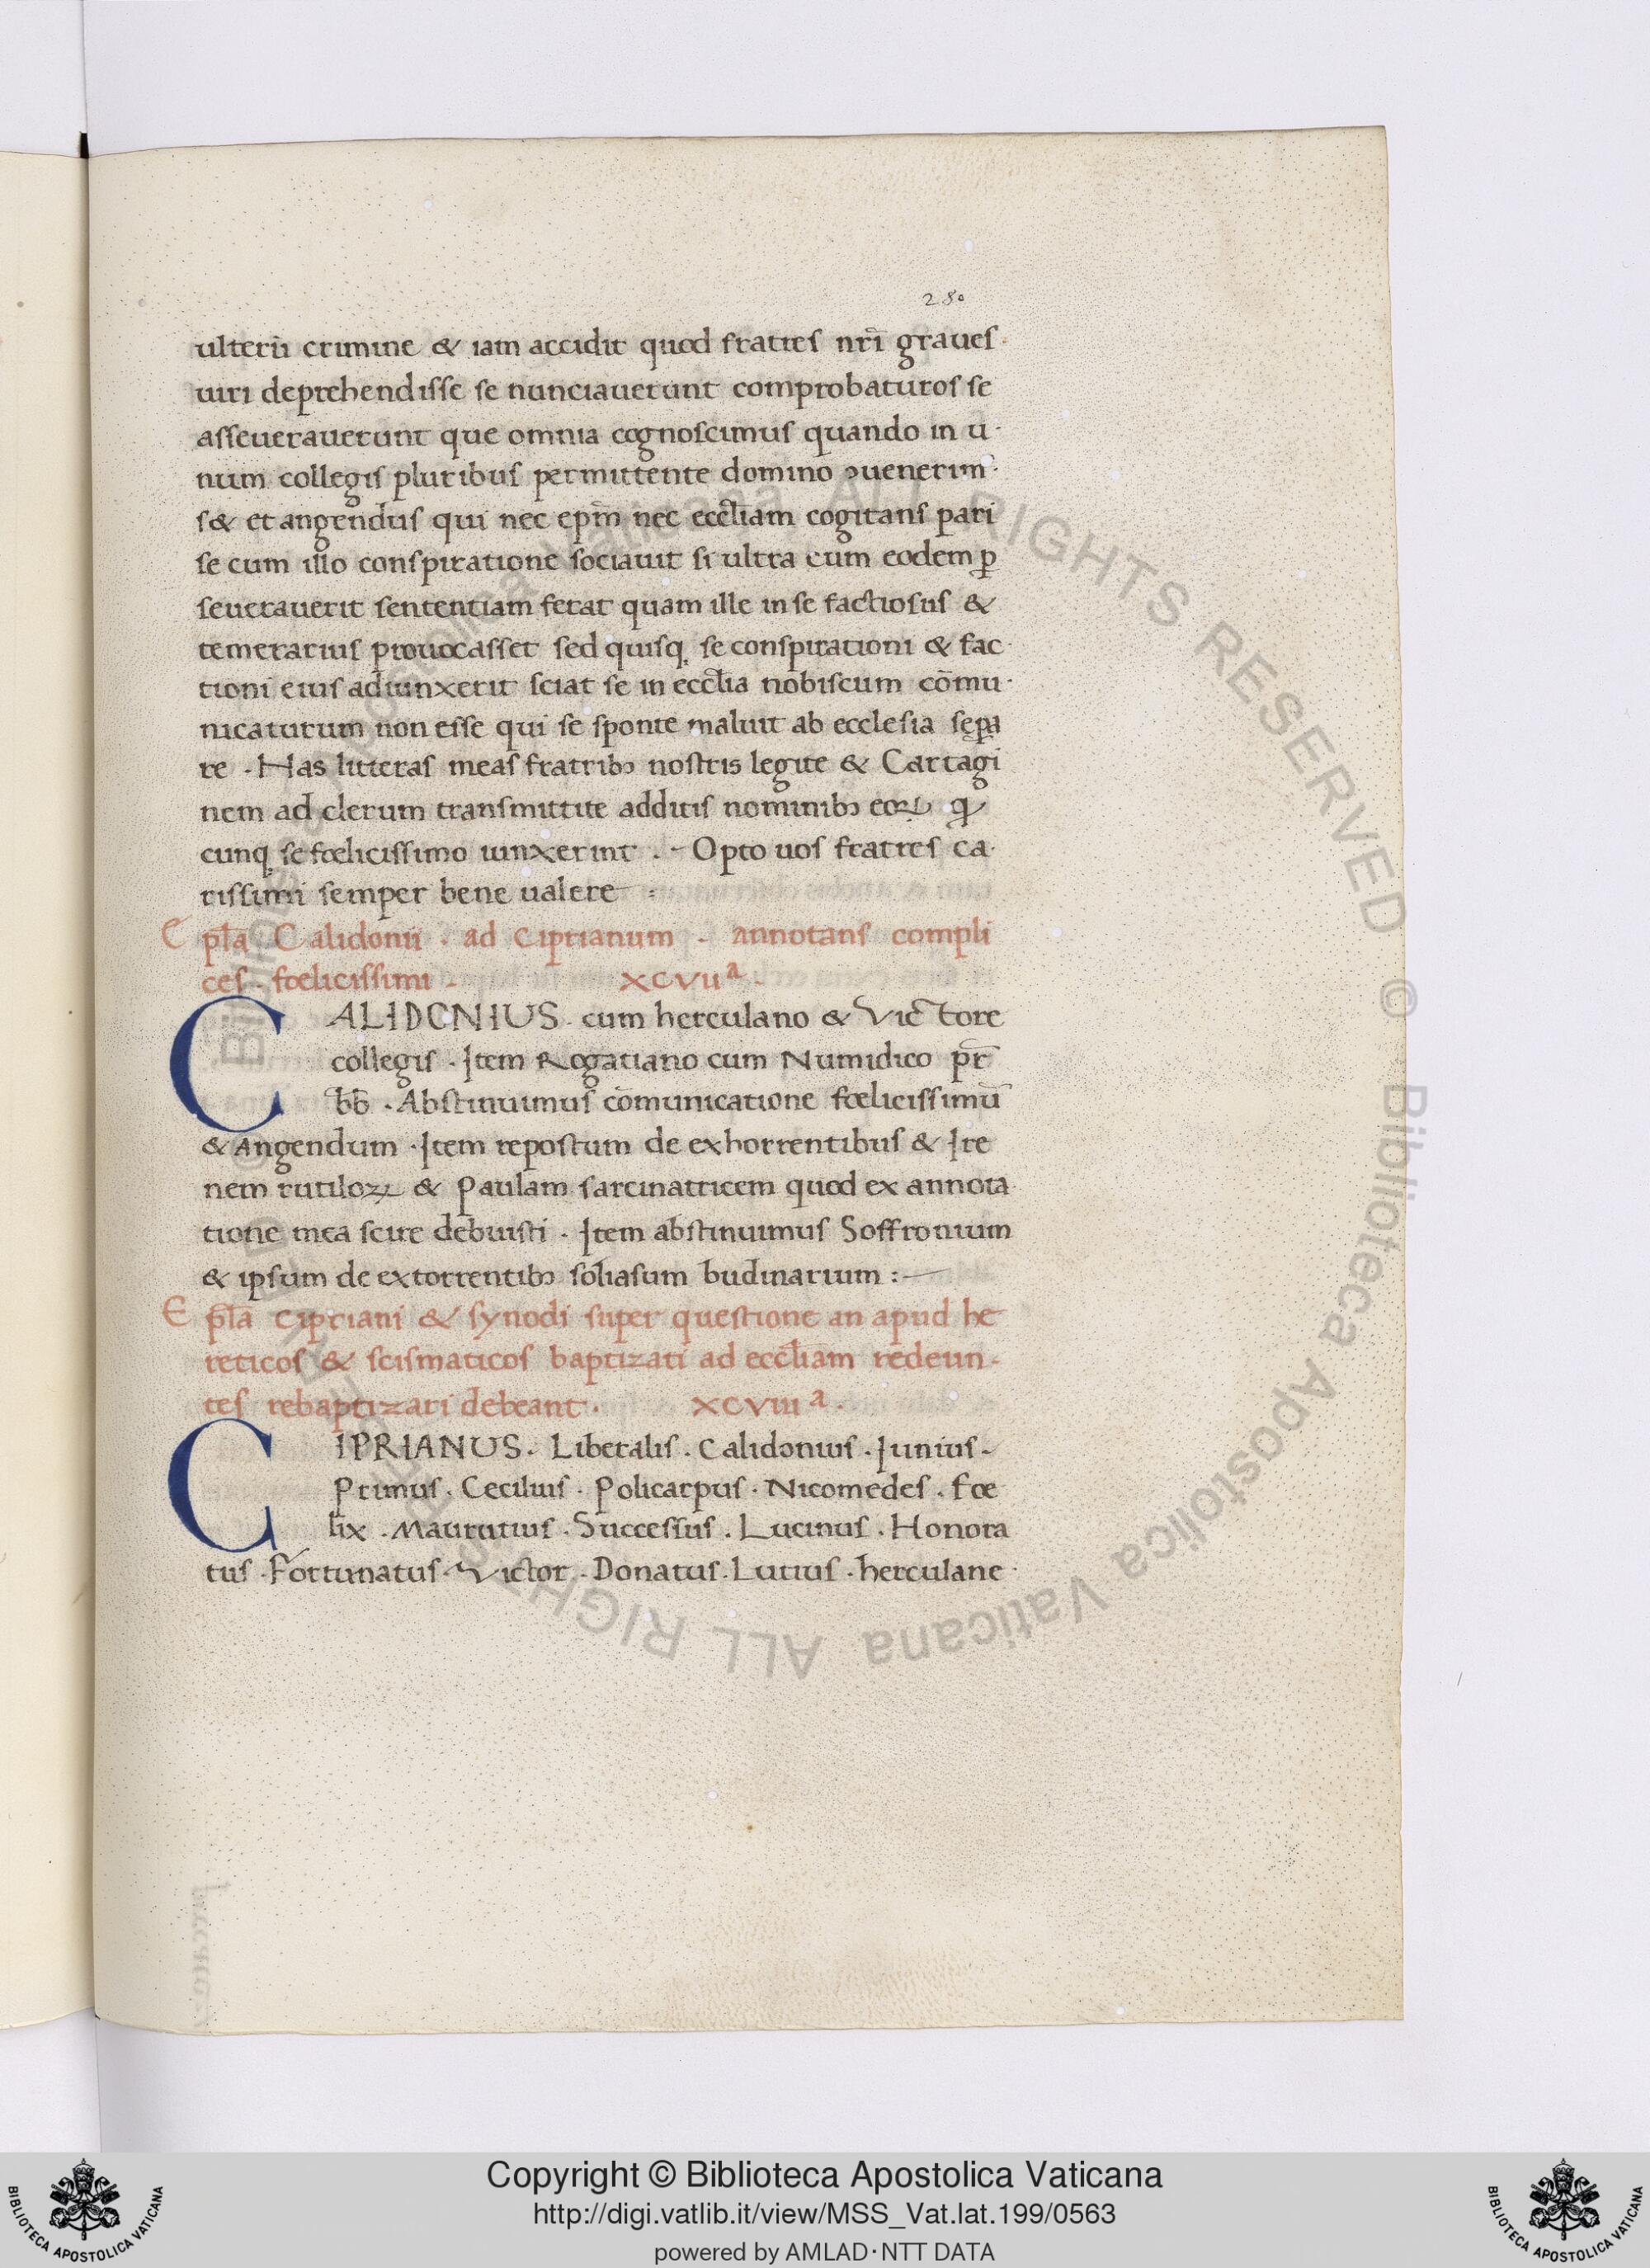 280
ulterii crimine & iam accidit quod fratres nr̄i graues
uiri deprehendisse se nunciauerunt comprobaturos se
asseuerauerunt que omnia cognoscimus quando in u·
num collegis pluribus permittente domino ↄuenerim̄·
s& et angendus qui nec ep̄m nec eccl̄iam cogitans pari
se cum illo conspiratione sociauit si ultra cum eodem ꝑ
seuerauerit sententiam ferat quam ille in se factiosus &
temerarius prouocasset sed quisq; se conspirationi & fac·
tioni eius adiunxerit sciat se in eccl̄ia nobiscum cōmu·
nicaturum non esse qui se sponte maluit ab ecclesia seꝑa
re · Has litteras meas fratribꝫ nostris legite & Cartagi
nem ad clerum transmittite additis nominibꝫ eoꝝ q
cunq; se fœlicissimo iunxerint . - Opto uos fratres ca·
rissimi semper bene ualere :
Epl̄a Calidonii · ad Ciprianum · annotans compli
ces · fœlicissimi · XCVIIᵃ ·
CALIDONIUS · cum herculano & Victore
collegis · Item Rogatiano cum Numidico pr̄
bb̄ · Abstinuimus cōmunicatione fœlicissimū
& Angendum · Item repostum de exhorrentibus & Ire
nem rutiloꝝ & Paulam sarcinatricem quod ex annota
tione mea scire debuisti · Item abstinuimus Soffronium
& ipsum de extorrentibꝫ soliasum budinarium :—
Epl̄a Cipriani & synodi super questione an apud he
reticos & scismaticos baptizati ad eccl̄iam redeun-
tes rebaptizari debeant · XCVIIIᵃ ·
CIPRIANUS · Liberalis · Calidonius · Iunius -
Primus · Cecilius · Policarpus · Nicomedes · Fœ
lix · Maurutius · Successus · Lucinus · Honora
tus · Fortunatus · Victor · Donatus · Lutius · herculane ·
© Biblioteca Apostolica Vaticana ALL RIGHTS RESERVED © Biblioteca Apostolica Vaticana ALL RIGHTS RESERVED
Copyright © Biblioteca Apostolica Vaticana
http://digi.vatlib.it/view/MSS_Vat.lat.199/0563
powered by AMLAD·NTT DATA
BIBLIOTECA APOSTOLICA VATICANA
BIBLIOTECA APOSTOLICA VATICANA